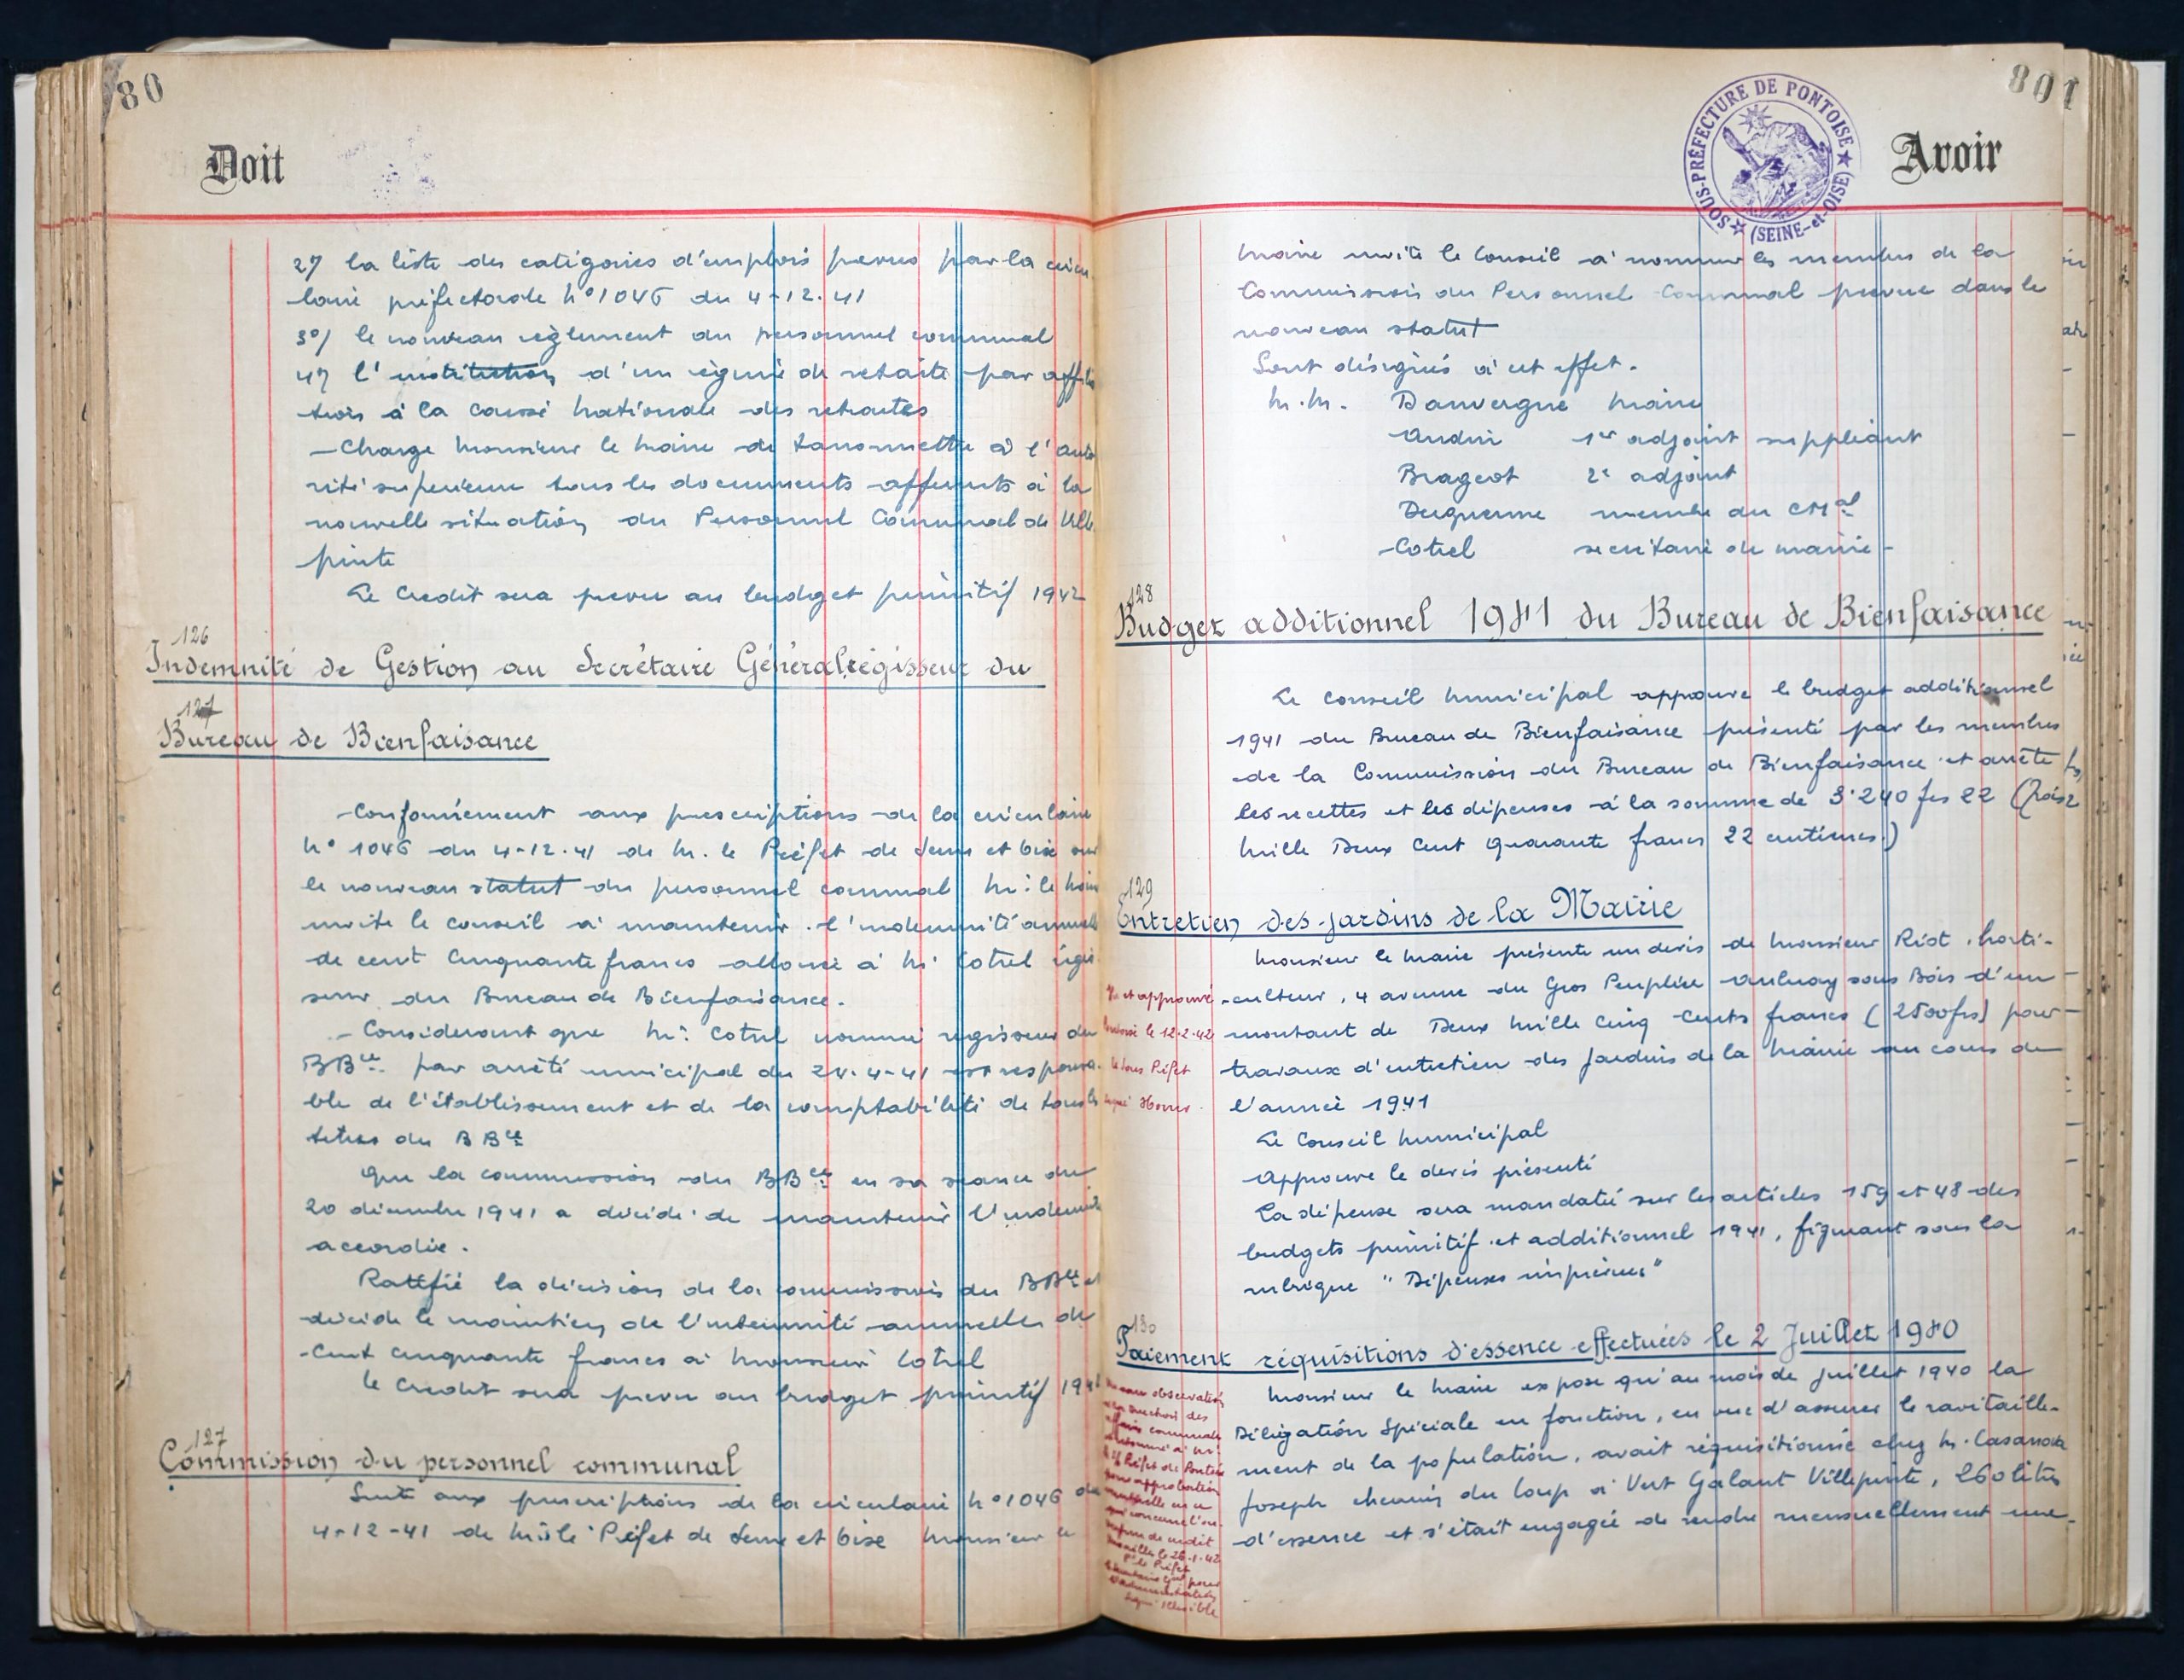 80
Doit
2°/ la liste des catégories d'emplois prevus par la circu-
laire préfectorale N° 1046 du 4-12-41
3°/ le nouveau règlement du personnel communal
4°/ l'institution d'un régime de retraite par affilia
tion à la caisse Nationale des retraites
- Charge Monsieur le Maire de transmettre à l'auto
rité superieure tous les documents afferents à la
nouvelle situation du Personnel Communal de Ville
pinte
Le Credit sera prevu au budget primitif 1942
126
Indemnité de Gestion au Secrétaire Général, régisseur du
127
Bureau de Bienfaisance
- Conformément aux prescriptions de la circulaire
N° 1046 du 4-12-41 de M. le Préfet de Seine et Oise sur
le nouveau statut du personnel communal M. le Maire
invite le conseil à maintenir l'indemnité annuelle
de cent cinquante francs allouée à M. Cotrel régis
seur du Bureau de Bienfaisance.
- Considerant que M. Cotrel nommé regisseur du
BBce par arrêté municipal du 24-4-41 est responsa-
ble de l'établissement et de la comptabilité de tous les
titres du BBce
Que la commission du BBce en sa séance du
20 décembre 1941 a décidé de maintenir l'indemnité
accordée.
Ratifié la décision de la commission du BBce et
décide le maintien de l'indemnité annuelle de
Cent cinquante francs à Monsieur Cotrel
le credit sera prevu au budget primitif 194
127
Commission du personnel communal
Suite aux prescriptions de la circulaire N° 1046 du
4-12-41 de M. le Préfet de Seine et Oise Monsieur le
801
Avoir
SOUS-PRÉFECTURE DE PONTOISE
(SEINE-et-OISE)
Maire invite le Conseil à nommer les membres de la
Commission du Personnel Communal prevue dans le
nouveau statut
Sont désignés à cet effet.
M.M. Dauvergne Maire
Audin 1er adjoint suppléant
Brageot 2e adjoint
Duquenne membre du CMal
Cotrel secrétaire de mairie -
128
Budget additionnel 1941 du Bureau de Bienfaisance
Le Conseil Municipal approuve le budget additionnel
1941 du Bureau de Bienfaisance présenté par les membres
de la Commission du Bureau de Bienfaisance et arrête
les recettes et les dépenses à la somme de 3.240 frs 22 (Trois
Mille Deux Cent Quarante francs 22 centimes)
129
Entretien des jardins de la Mairie
Monsieur le Maire présente un devis de Monsieur Riot, horti-
culteur, 4 avenue du Gros Peuplier Aulnay sous Bois d'un
montant de Deux Mille Cinq Cents francs (2500frs) pour
travaux d'entretien des Jardins de la Mairie au cours de
l'année 1941
Vu et approuvé
Pontoise le 12-2-42
le Sous Préfet
signé
Le Conseil Municipal
Approuve le devis présenté
La dépense sera mandatée sur les articles 159 et 48 des
budgets primitif et additionnel 1941, figurant sous la
rubrique "Dépenses imprévues"
130
Paiement réquisitions d'essence effectuées le 2 Juillet 1940
Monsieur le Maire expose qu'au mois de Juillet 1940 la
Délégation Spéciale en fonction, en vue d'assurer le ravitaille-
ment de la population, avait réquisitionné chez M. Casanova
Joseph chemin du loup à Vert Galant Villepinte, 260 litres
d'essence et s'était engagée de rendre mensuellement une
observation
des
communale
Préfet de Pontoise
approbation
qui concerne l'ou-
de crédit
Versailles le 26-1-42
Pr le Préfet
signé illisible